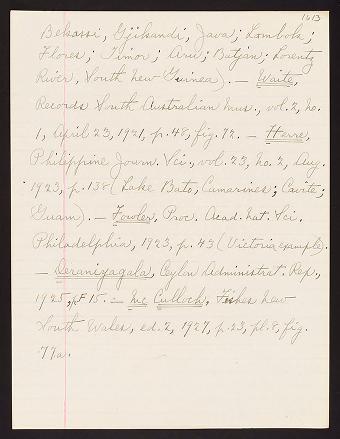 1613
Bekassi, Tjikandi, Java; Lombok;
Flores; Timor; Aru; Batjan; Lorentz
River, South New Guinea). — Waite,
Records South Australian Mus., vol. 2, no.
1, April 23, 1921, p. 48, fig. 72. — Herre,
Philippine Journ. Sci., vol. 23, no. 2, Aug.
1923, p. 138 (Lake Bato, Camarines; Cavite;
Guam). — Fowler, Proc. Acad. Nat. Sci.
Philadelphia, 1923, p. 43 (Victoria example).
— Deraniyagala, Ceylon Administrat. Rep.,
1925, p. F15. — McCulloch, Fishes New
South Wales, ed. 2, 1927, p. 23, pl. 8, fig.
77a.